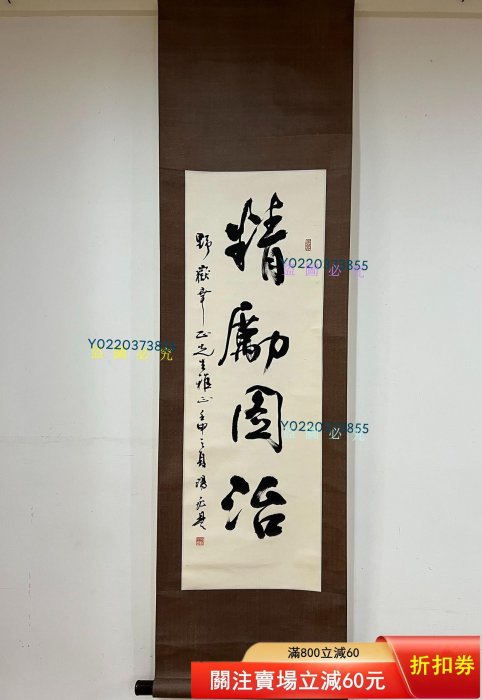 精勵图治
野嶽幸正先生雅正壬申之夏
Y0220373855
盜圖必究
Y0220373855
盜圖必究
Y0220373855
盜圖必究
滿800立減60
關注賣場立減60元
折扣券